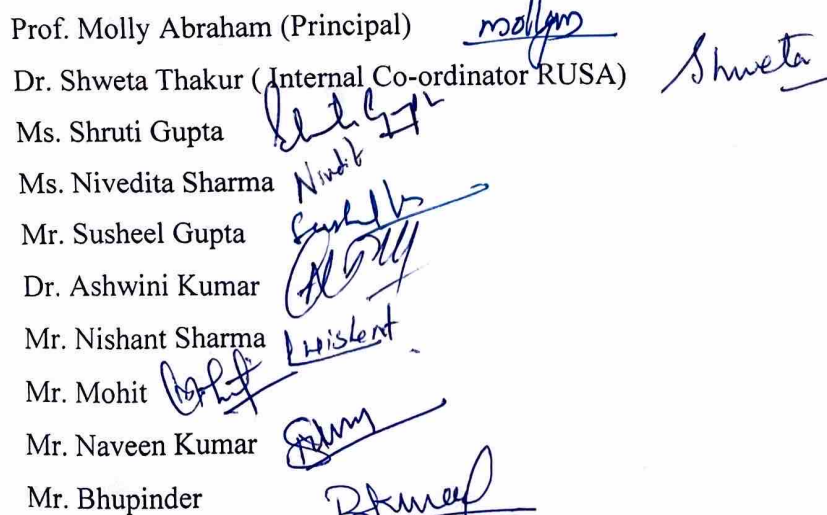 Prof. Molly Abraham (Principal) mollym
Dr. Shweta Thakur ( Internal Co-ordinator RUSA) Shweta
Ms. Shruti Gupta
Ms. Nivedita Sharma
Mr. Susheel Gupta
Dr. Ashwini Kumar
Mr. Nishant Sharma
Mr. Mohit
Mr. Naveen Kumar
Mr. Bhupinder